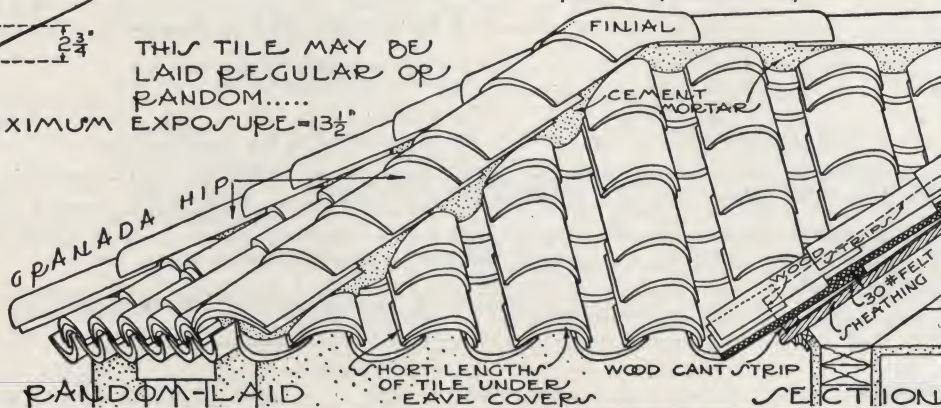 2¾"
THIS TILE MAY BE
LAID REGULAR OR
RANDOM.....
XIMUM EXPOSURE=13½"
FINIAL
CEMENT
MORTAR
GRANADA HIP
WOOD
STRIPS
30# FELT
SHEATHING
SHORT LENGTHS
OF TILE UNDER
EAVE COVERS
WOOD CANT STRIP
RANDOM-LAID
SECTION